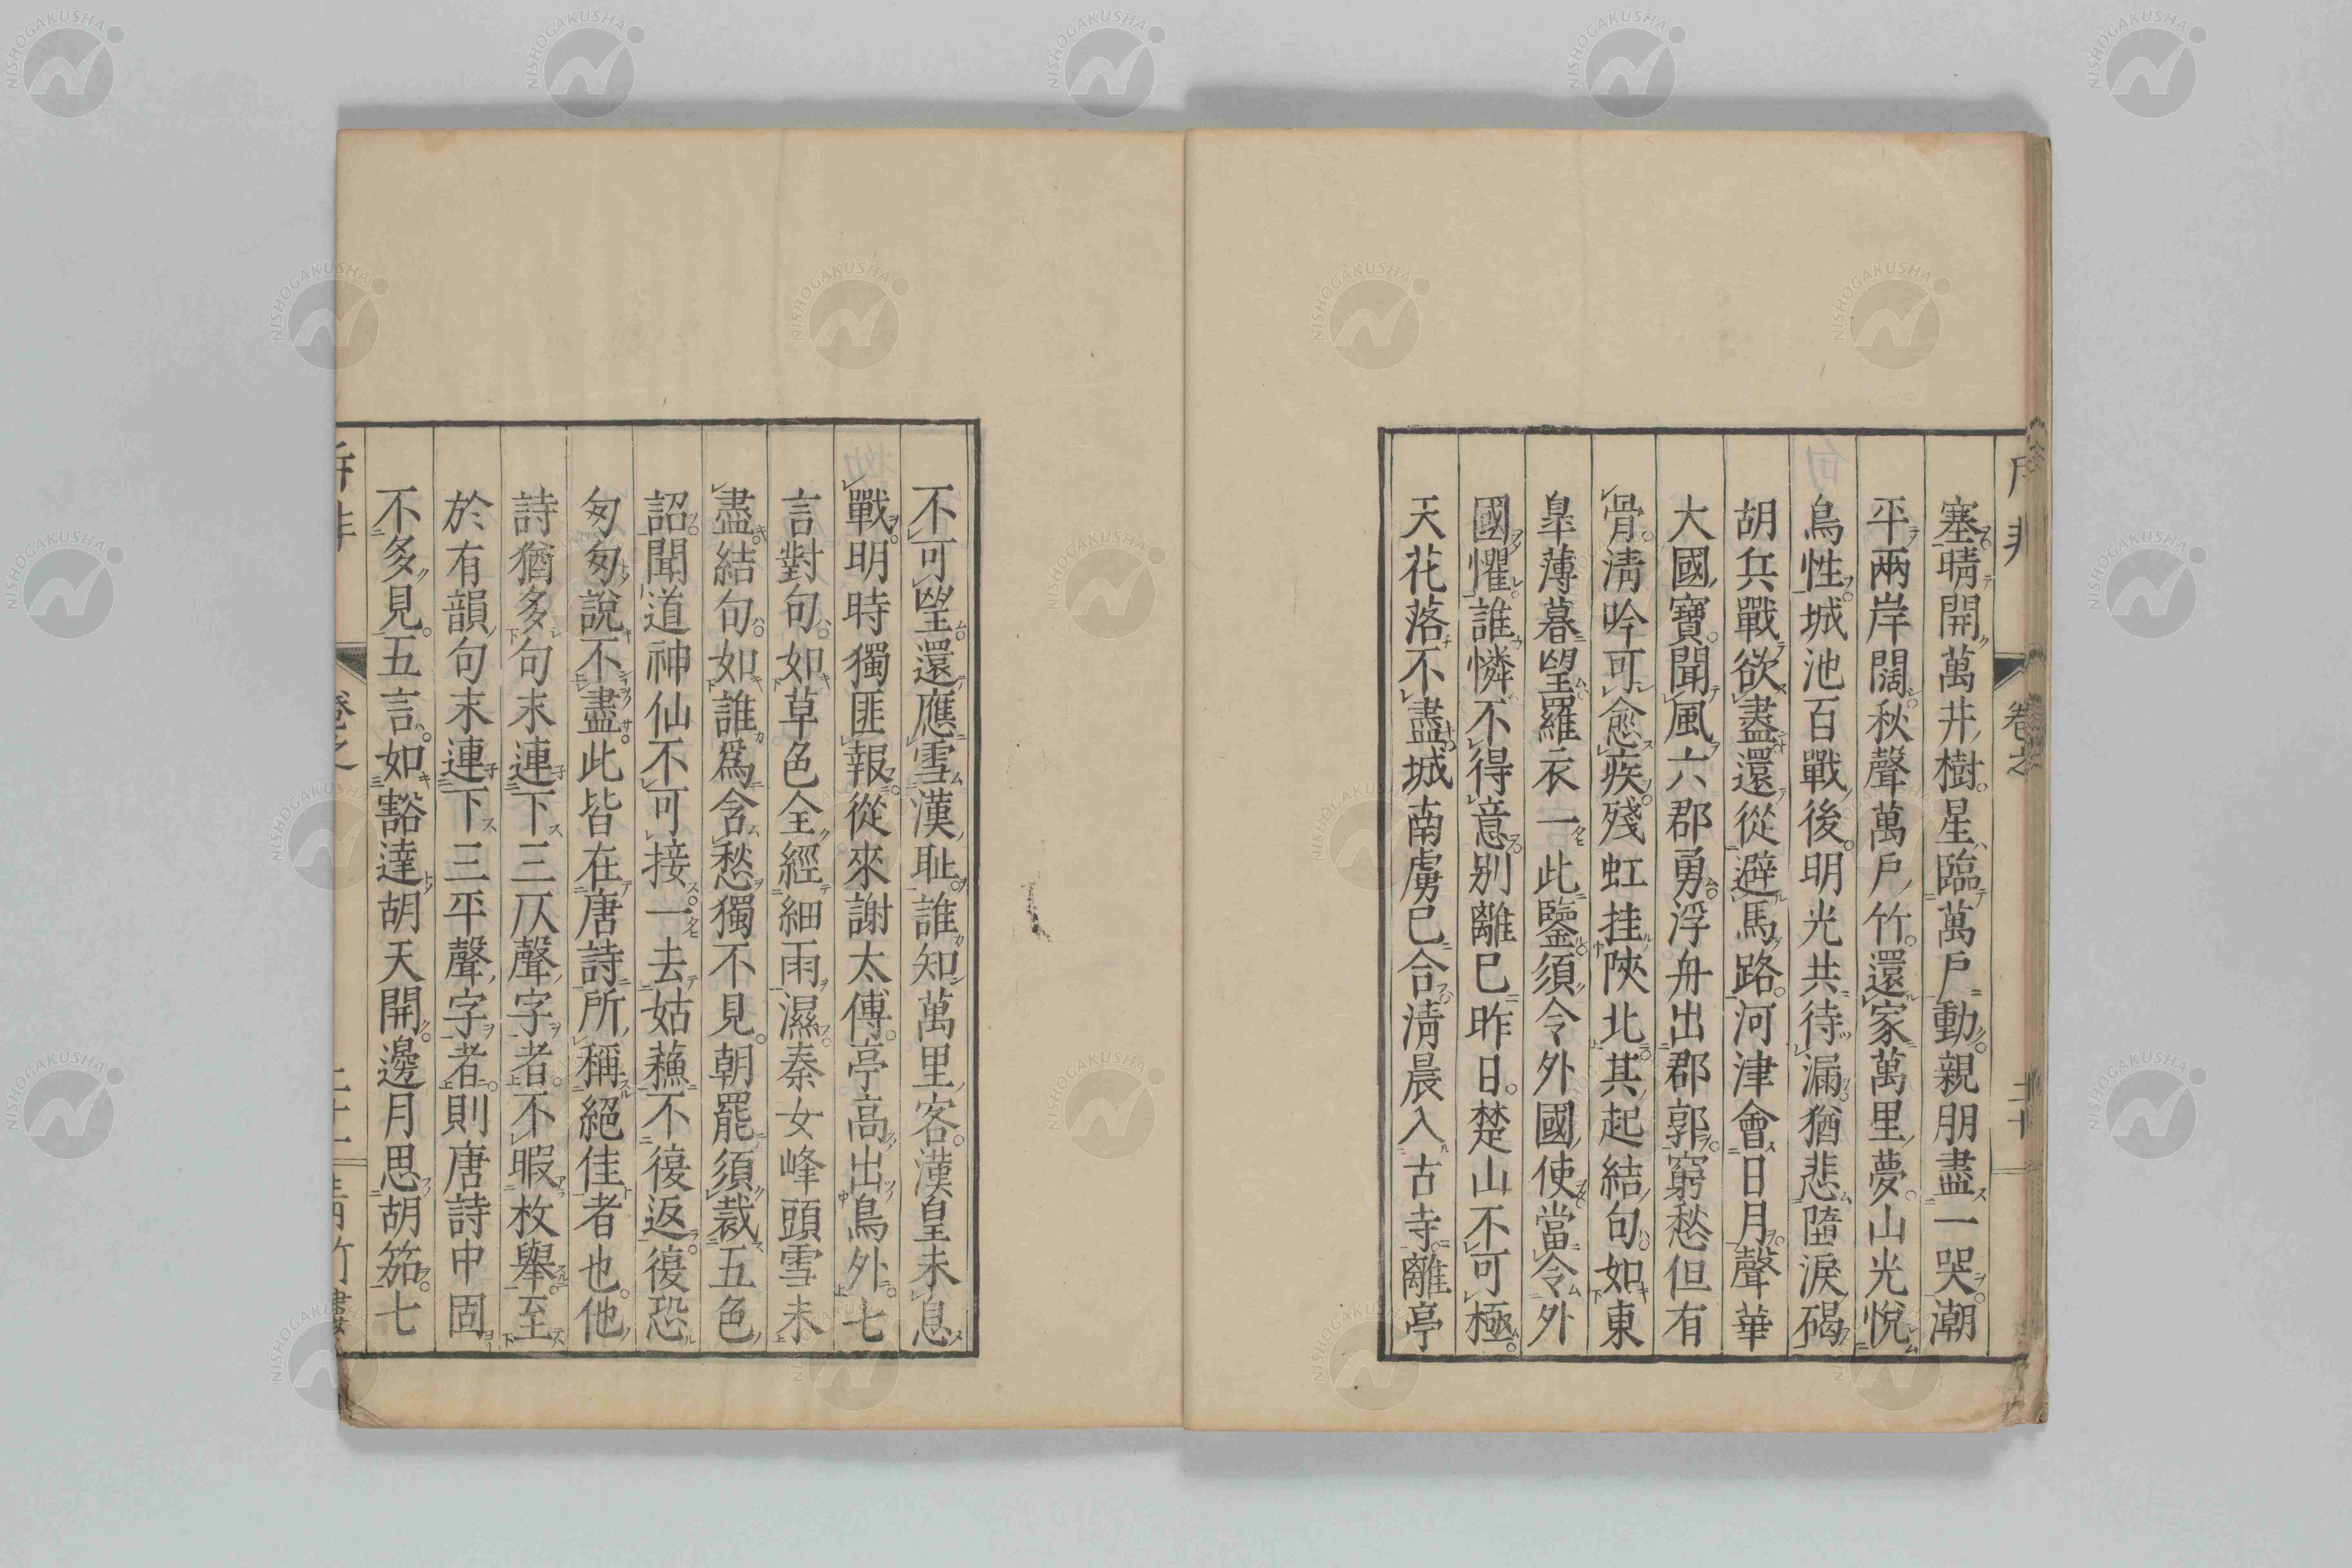 塞晴開萬井樹星臨萬戶動親朋盡一哭潮
平兩岸闊秋聲萬戶竹還家萬里夢山光悅
鳥性城池百戰後明光共待漏猶悲墮淚碣
胡兵戰欲盡還從避馬路河津會日月聲華
大國寶聞風六郡勇浮舟出郡郭窮愁但有
骨淸吟可愈疾殘虹挂陝北其起結句如東
皐薄暮望羅衣一此鑒須令外國使當令外
國懼誰憐不得意別離已昨日楚山不可極
天花落不盡城南虜已合淸晨入古寺離亭
不可望還應雪漢耻誰知萬里客漢皇未息
戰明時獨匪報從來謝太傅亭高出鳥外七
言對句如草色全經細雨濕秦女峰頭雪未
盡結句如誰爲含愁獨不見朝罷須裁五色
詔聞道神仙不可接一去姑蘓不復返復恐
匆匆說不盡此皆在唐詩所稱絕佳者也他
詩猶多句末連下三仄聲字者不暇枚舉至
於有韻句末連下三平聲字者則唐詩中固
不多見五言如豁達胡天開邊月思胡笳七
卷之
NISHOGAKUSHA